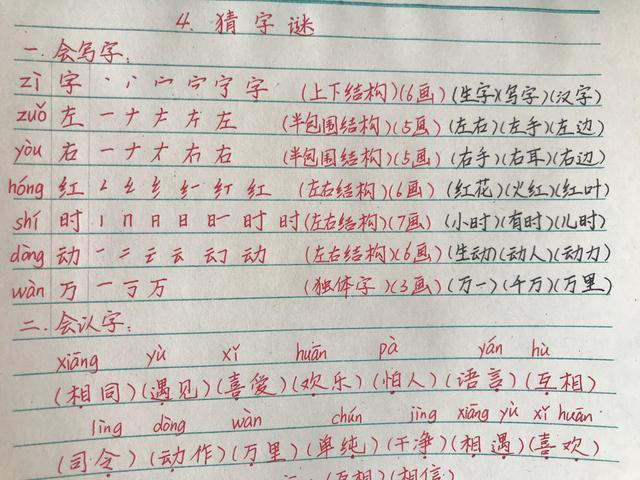 4. 猜字谜
一. 会写字:
zì 字 丶 丷 宀 宁 字 (上下结构)(6画)(生字)(写字)(汉字)
zuǒ 左 一 ナ 左 (半包围结构)(5画)(左右)(左手)(左边)
yòu 右 一 ナ 右 右 (半包围结构)(5画)(右手)(右耳)(右边)
hóng 红 纟 红 (左右结构)(6画)(红花)(火红)(红叶)
shí 时 丨 冂 日 日 时 时 (左右结构)(7画)(小时)(有时)(儿时)
dòng 动 一 二 云 云 动 (左右结构)(6画)(生动)(动人)(动力)
wàn 万 一 丂 万 (独体字)(3画)(万一)(千万)(万里)
二. 会认字:
xiāng yù xǐ huān pà yán hù
(相同)(遇见)(喜爱)(欢乐)(怕人)(语言)(互相)
lìng dòng wàn chún jìng xiāng yù xǐ huān
(司令)(动作)(万里)(单纯)(干净)(相遇)(喜欢)
(互相)(相信)